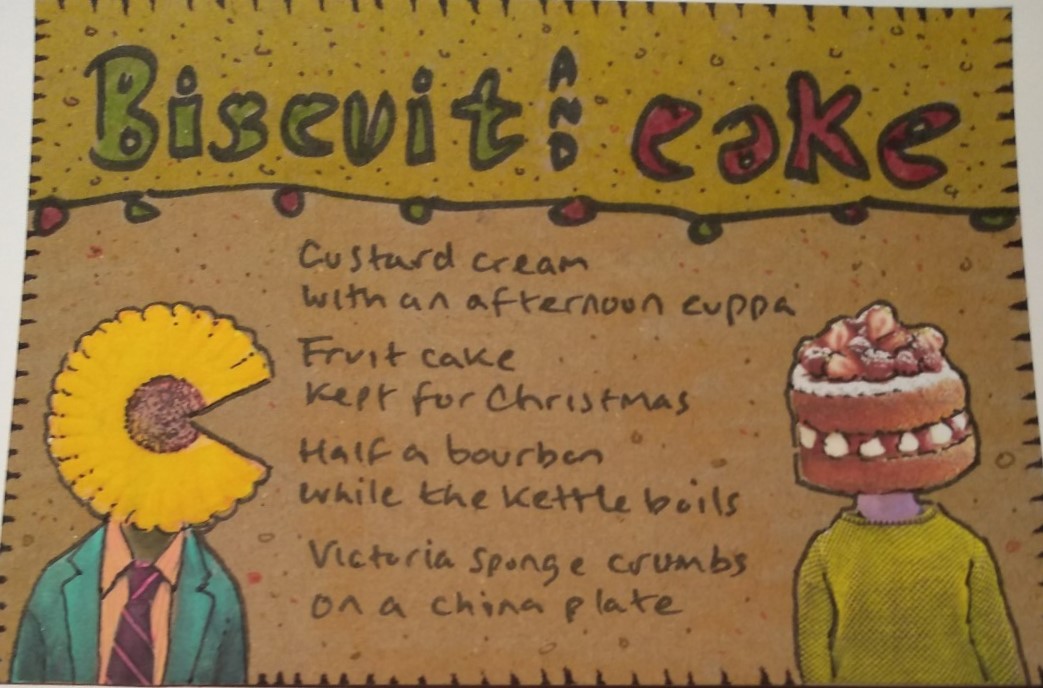 Biscuit AND cake
Custard cream
with an afternoon cuppa
Fruit cake
kept for Christmas
Half a bourbon
while the kettle boils
Victoria sponge crumbs
on a china plate